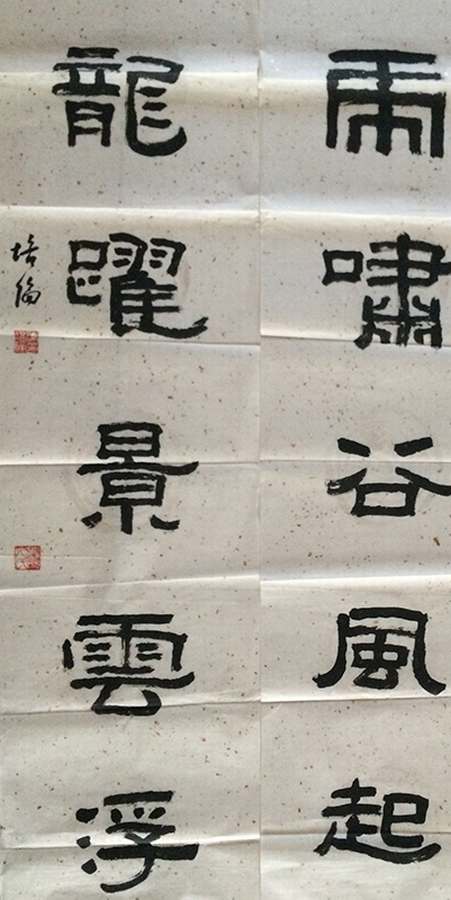 虎嘯谷風起
龍躍景雲浮
培倫